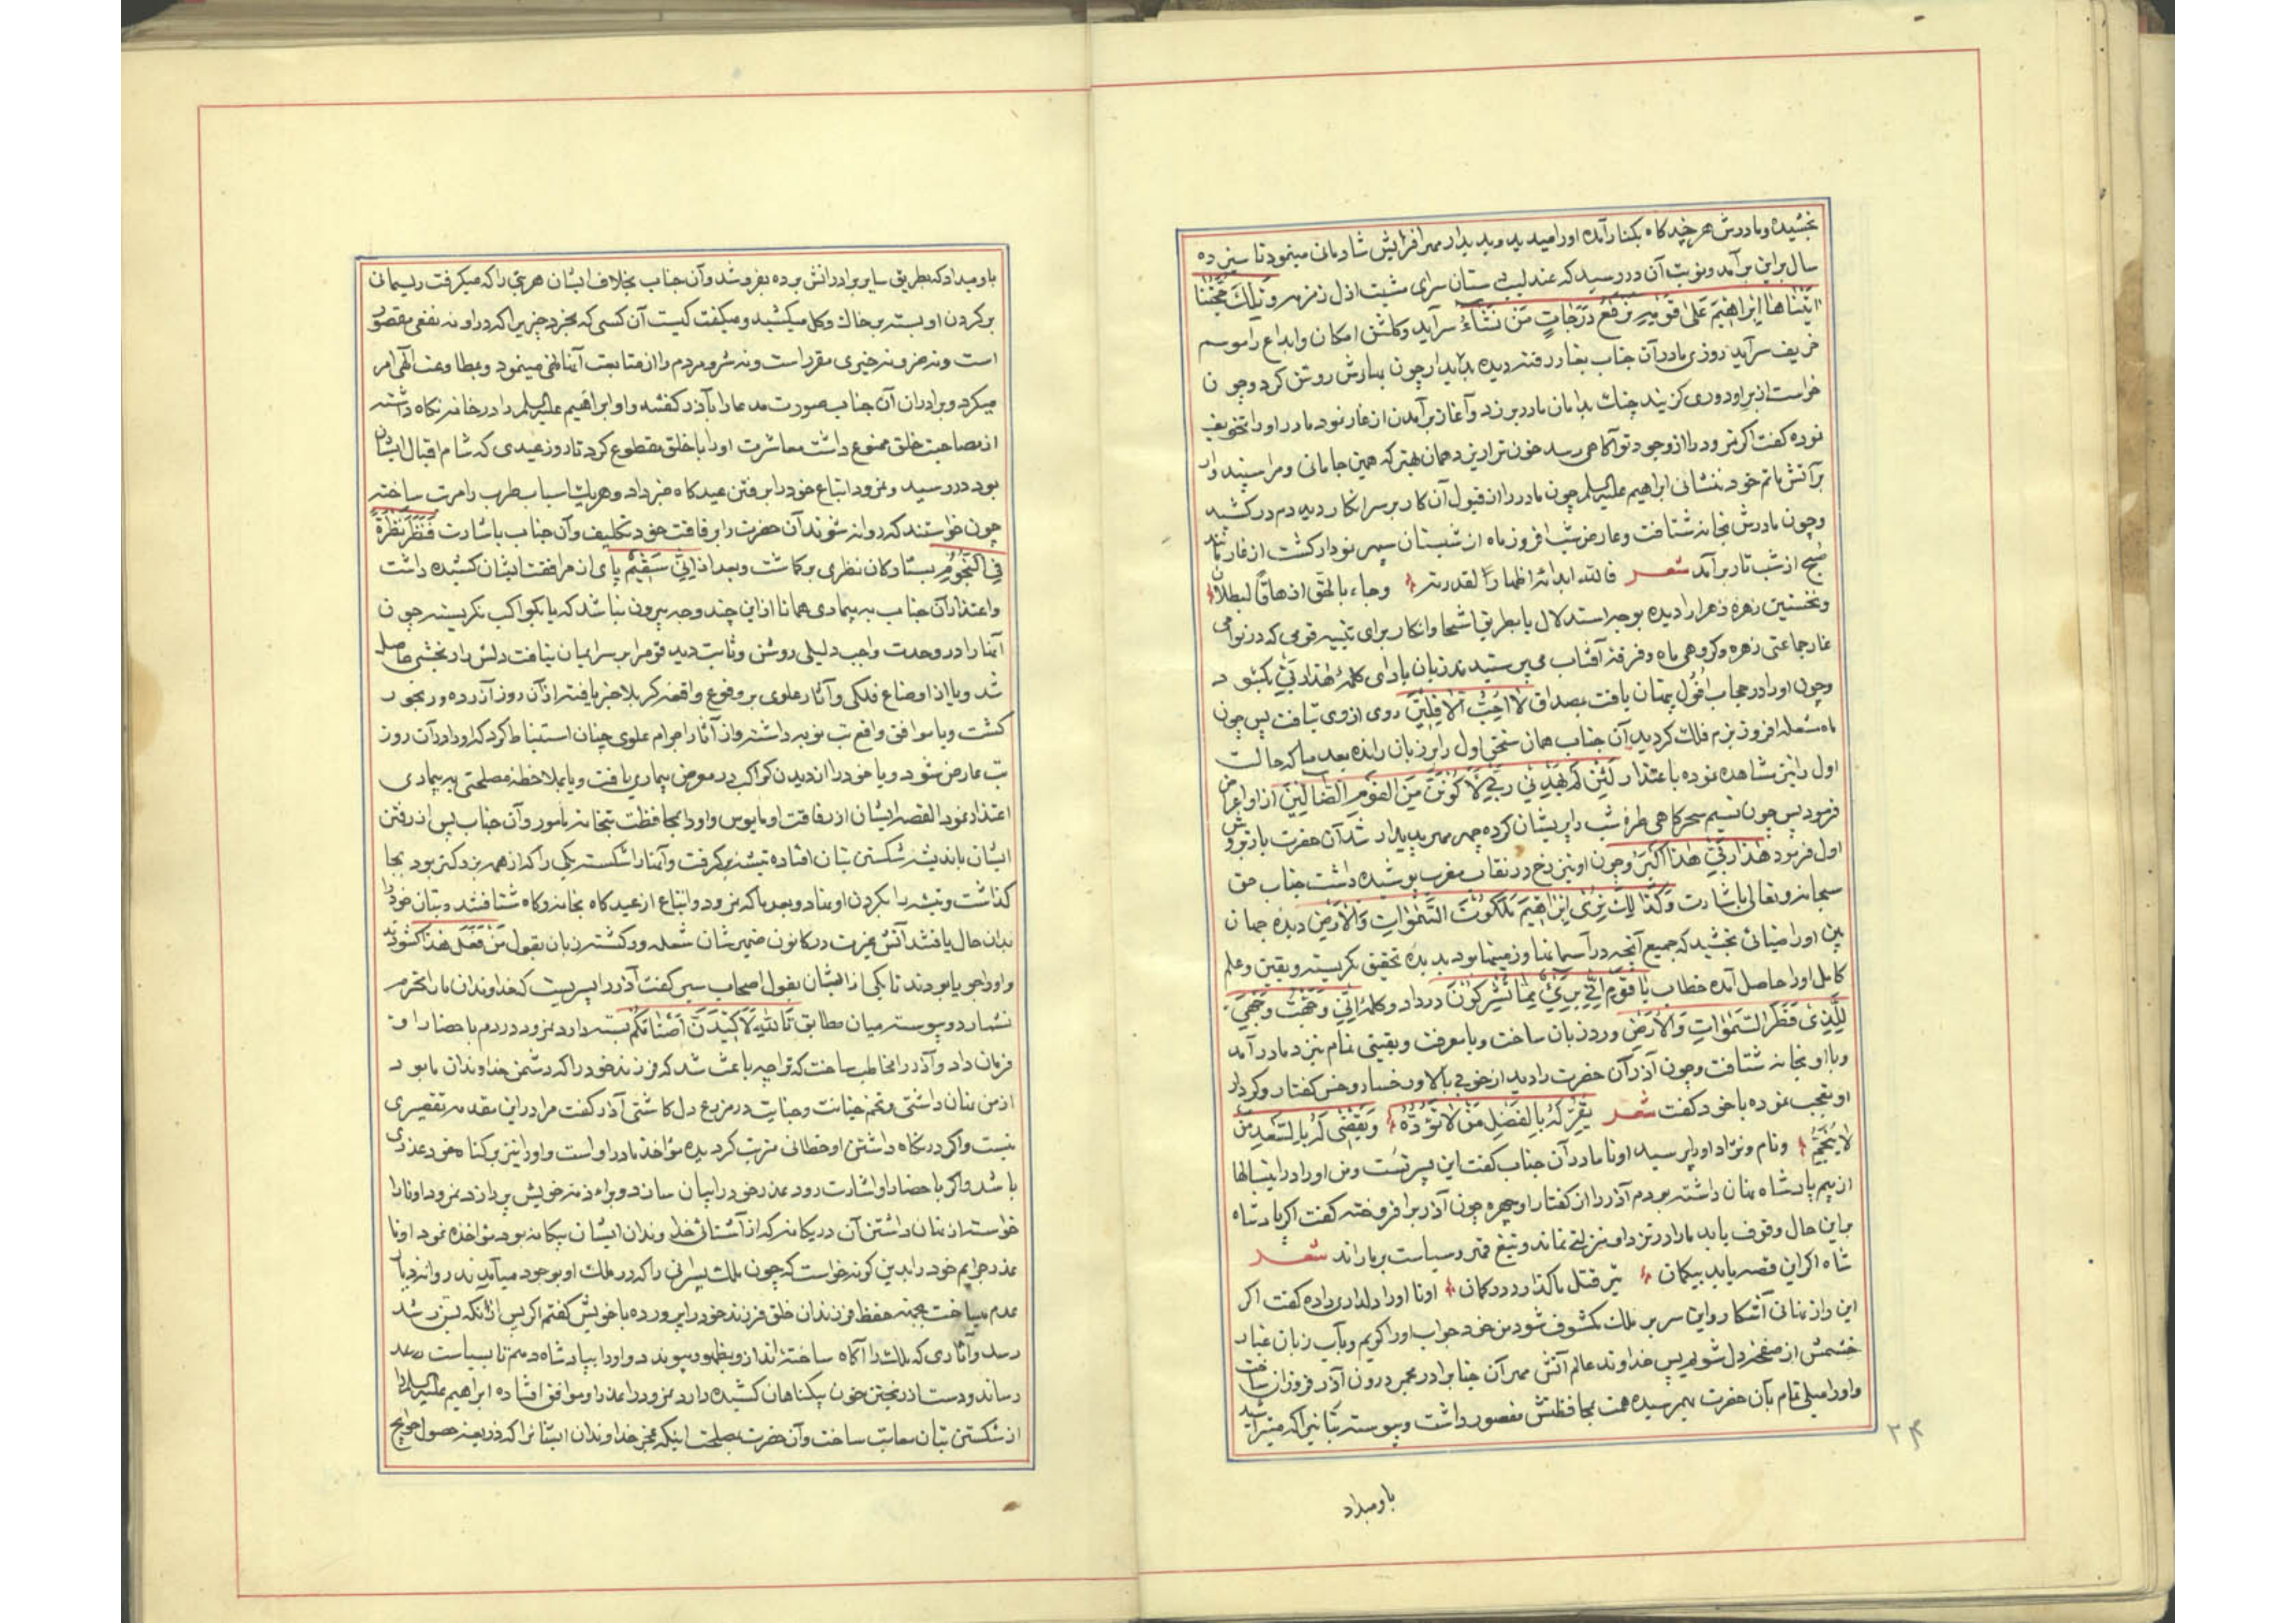 بخشیده و مادرش هر چند کاه بکنار آمده اورا میدید و بدیدار مهر افزایش شادمانی مینمود تا سیزده
سال براین برآمد و نوبت آن در رسید که عندلیب ستان سرای مشیت ازل زمزمه و تِلْکَ حُجَّتُنا
اتَیْناها اِبْراهیمَ عَلی قَوْمِهِ نَرْفَعُ دَرَجاتٍ مَنْ نَشاءُ سراید و کلشن امکان و ابداع را موسم
خریف سرآید روزی مادر آن جناب بغار رفته دیده بدیدار چون بهارش روشن کرد و چون
خواست از بر او دوری کزیند چنک بدامان مادر بر زد و آغاز برآمدن از غار نمود مادر اورا تخویف
نموده کفت اکر نمرود را از وجود تو آکاهی رسد خون ترا ریزد همان بهتر که همین جا مانی و مرا سپند وار
بر آتش ماتم خود ننشانی ابراهیم علیه السلم چون مادر را از قبول آن کار بر سر انکار دید دم در کشید
و چون مادرش بخانه شتافت و عارض شب افروز ماه از شبستان سپهر نمودار کشت از غار مانند
صبح از شب تار برآمد شعر فالله ابداه اظهاراً لقدرته وجاء بالحق ازهاقاً لبطلان
و نخستین زهره زهرا را دیده بوجه استدلال یا بطریق استهزا و انکار برای تنبیه قومی که در نواحی
غار جماعتی زهره و کروهی ماه و فرقه آفتاب می پرستیدند زبان بادای کلمهٔ هٰذا رَبّی بکشود
و چون اورا در حجاب اُفُول پنهان یافت بمصداق لا اُحِبُّ الْافِلینَ روی از وی بتافت پس چون
ماه شعله افروز بزم فلک کردید آن جناب همان سخن اول را بر زبان رانده بعد ما که حالت
اول را نیز مشاهده نموده باعتذار لَئِنْ لَمْ یَهْدِنی رَبّی لَاَکُونَنَّ مِنَ الْقَوْمِ الضّالّینَ از او اعراض
فرمود پس چون نسیم سحرکاهی طرهٔ شب را پریشان کرده چهر مهر پدیدار شد آن حضرت باز بروش
اول فرمود هٰذا رَبّی هٰذا اَکْبَرُ و چون او نیز رخ در نقاب مغرب پوشیده داشت جناب حق
سبحانه و تعالی باشارت وَ کَذٰلِکَ نُری اِبْراهیمَ مَلَکُوتَ السَّمٰواتِ وَ الْاَرْضِ دیده جهان
بین اورا ضیائی بخشید که جمیع آنچه در آسمانها و زمینها بود بدیده تحقیق نکریسته و یقین و علم
کامل اورا حاصل آمده خطاب یا قَوْمِ اِنّی بَرئٌ مِمّا تُشْرِکُونَ در داد و کلمهٔ اِنّی وَجَّهْتُ وَجْهِیَ
لِلَّذی فَطَرَ السَّمٰواتِ وَ الْاَرْضَ ورد زبان ساخت و با معرفت و یقینی تمام بنزد مادر آمد
و با او بخانه شتافت و چون آذر آن حضرت را دید از خوبی بالا و رخسار و حسن کفتار و کردار
او تعجب نموده با خود کفت شعر یُقِرُّ لَهُ بِالْفَضْلِ مَنْ لا تَوَدُّهُ وَ یَقْضی لَهُ بِالسَّعْدِ مَنْ
لا یُنَجِّمُ و نام و نژاد اورا پرسید اونا مادر آن جناب کفت این پسر تست و من اورا در این سالها
از بیم پادشاه پنهان داشته بودم آذر را از کفتار او چهره چون آذر برافروخته کفت اکر پادشاه
براین حال وقوف یابد مارا در نزد او منزلتی نماند و تیغ قهر و سیاست بر ما راند شعر
شاه اکر این قصه یابد بیکمان تیر قتل ما کذارد در کمان اونا اورا دلداری داده کفت اکر
این راز نهانی آشکار و این سر بر ملک مکشوف شود من خود جواب اورا کویم و بآب زبان غبار
خشمش از صفحهٔ دل شویم پس خداوند عالم آتش مهر آن جناب را در مجمر درون آذر فروزان ساخت
و اورا میلی تمام بآن حضرت بهم رسیده همت بمحافظتش مقصور داشت و پیوسته بتانیرا که میتراشید
باو میداد
۳۴
باو میداد که بطریق سایر برادرانش برده بفروشد و آن جناب بخلاف ایشان هر بتی را که میکرفت ریسمانی
بر کردن او بسته بر خاک و کل میکشید و میکفت کیست آن کسی که بخرد چیزیرا که در او نه نفعی مقصور
است و نه ضر و نه خیری مقرر است و نه شر و مردم را از متابعت آنها نهی مینمود و بطاوعت الهی امر
میکرد و برادران آن جناب صورت مدعا را بآذر کفته و او ابراهیم علیه السلم را در خانه نکاه داشته
از مصاحبت خلق ممنوع داشت معاشرت اورا با خلق مقطوع کرد تا روز عیدی که شام اقبال ایشان
بود در رسید و نمرود اتباع خود را برفتن عیدکاه خبر داد و هریک اسباب طرب را مرتب ساخته
چون خواستند که روانه شوند آن حضرت را برفاقت خود تکلیف و آن جناب باشارت فَنَظَرَ نَظْرَةً
فِی النُّجُومِ بستارکان نظری برکماشت و بعد از اِنّی سَقیمٌ پای از مرافقت ایشان کشیده داشت
و اعتذار آن جناب به بیماری همانا از این چند وجه بیرون نباشد که یا بکواکب نکریسته چون
آنها را در وحدت واجب دلیلی روشن و ثابت دید قومرا بر سر ایمان نیافت دلش را رنجشی حاصل
شد و یا از اوضاع فلکی و آثار علوی بر وقوع واقعهٔ کربلا خبر یافته از آن روز آزرده و رنجور
کشت و یا موافق واقع تب نوبه داشته و از آثار اجرام علوی چنان استنباط کرد که اورا در آن روز
تب عارض شود و یا خود را از دیدن کواکب در معرض بیماری یافت و یا بملاحظهٔ مصلحتی به بیماری
اعتذار نمود القصه ایشان از رفاقت او مایوس و اورا بمحافظت بتخانه مأمور و آن جناب پس از رفتن
ایشان باندیشه شکستن بتان افتاده تیشه برکرفت و آنها را شکسته یکی را که از همه بزرکتر بود بجا
کذاشت و تیشه را بکردن او نهاد و بعد ما که نمرود و اتباع از عیدکاه بخانه و کاه شتافتند و بتان خود را
بدان حال یافتند آتش غیرت در کانون ضمیرشان شعله ور کشته زبان بقول مَنْ فَعَلَ هٰذا کشودند
و اورا جویا بودند تا یکی از ایشان بقول اصحاب سیر کفت آذر را پسریست که خداوندان ما را محترم
نشمارد و پیوسته میان مطابق تَاللهِ لَاَکیدَنَّ اَصْنامَکُمْ بسته دارد نمرود در دم باحضار او
فرمان داد و آذر را مخاطب ساخت که ترا چه باعث شد که فرزند خود را که دشمن خداوندان ما بود
از من پنهان داشتی و تخم خیانت و جنایت در مزرع دل کاشتی آذر کفت مرا در این مقدمه تقصیری
نیست و اکر در نکاه داشتن او خطائی مرتب کردیده مؤاخذ مادر او است و اورا نیز بر کناه خود عذری
باشد و اکر باحضار او اشارت رود عذر خود را بپایان رساند و براء ذمه خویش پردازد نمرود اونا را
خواسته از پنهان داشتن آن در یکانه که از آشنائی خداوندان ایشان بیکانه بود مؤاخذه نمود اونا
عذر جرایم خود را بدین کونه خواست که چون ملک پسرانی را که در ملک او بوجود میآمدند روانه دیار
عدم میساخت بجهته حفظ فرزندان خلق فرزند خود را پرورده با خویش کفتم اکر پس از آنکه بسن رشد
رسد و آثاری که ملک را آکاه ساخته اند از او بظهور پیوندد اورا بپادشاه دهم تا بسیاست رسد
رساند و دست از ریختن خون بیکناهان کشیده دارد نمرود را عذر او موافق افتاده ابراهیم علیه السلم را
از شکستن بتان معاتب ساخت و آن حضرت بمصلحت اینکه عجز خداوندان ایشانرا که ذریعهٔ حصول حوایج